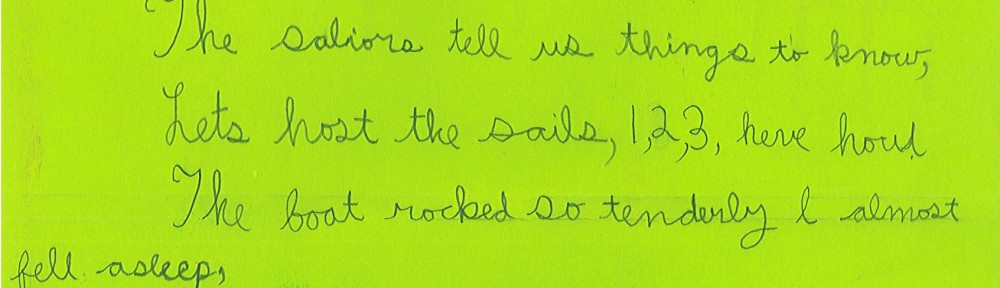 The saliors tell us things to know,
Lets host the sails, 1,2,3, heve
The boat rocked so tenderly I almost
fell asleep,